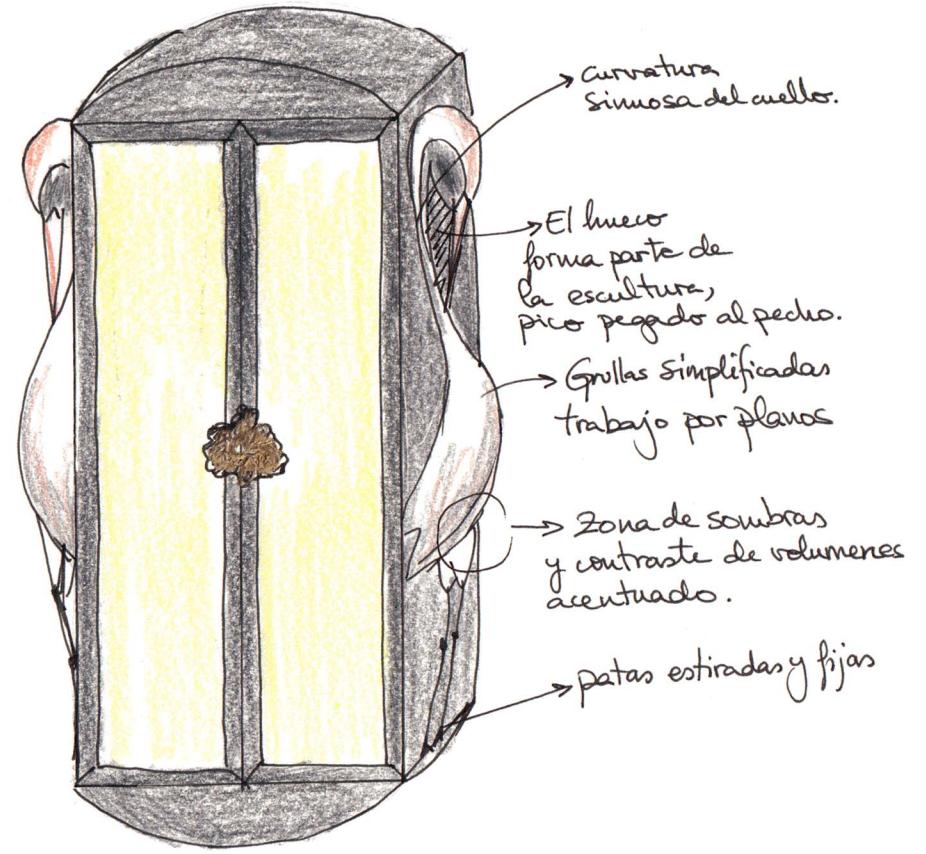 curvatura
sinuosa del cuello.
El hueco
forma parte de
la escultura,
pico pegado al pecho.
Grullas simplificadas
trabajo por planos
Zona de sombras
y contraste de volumenes
acentuado.
patas estiradas y fijas